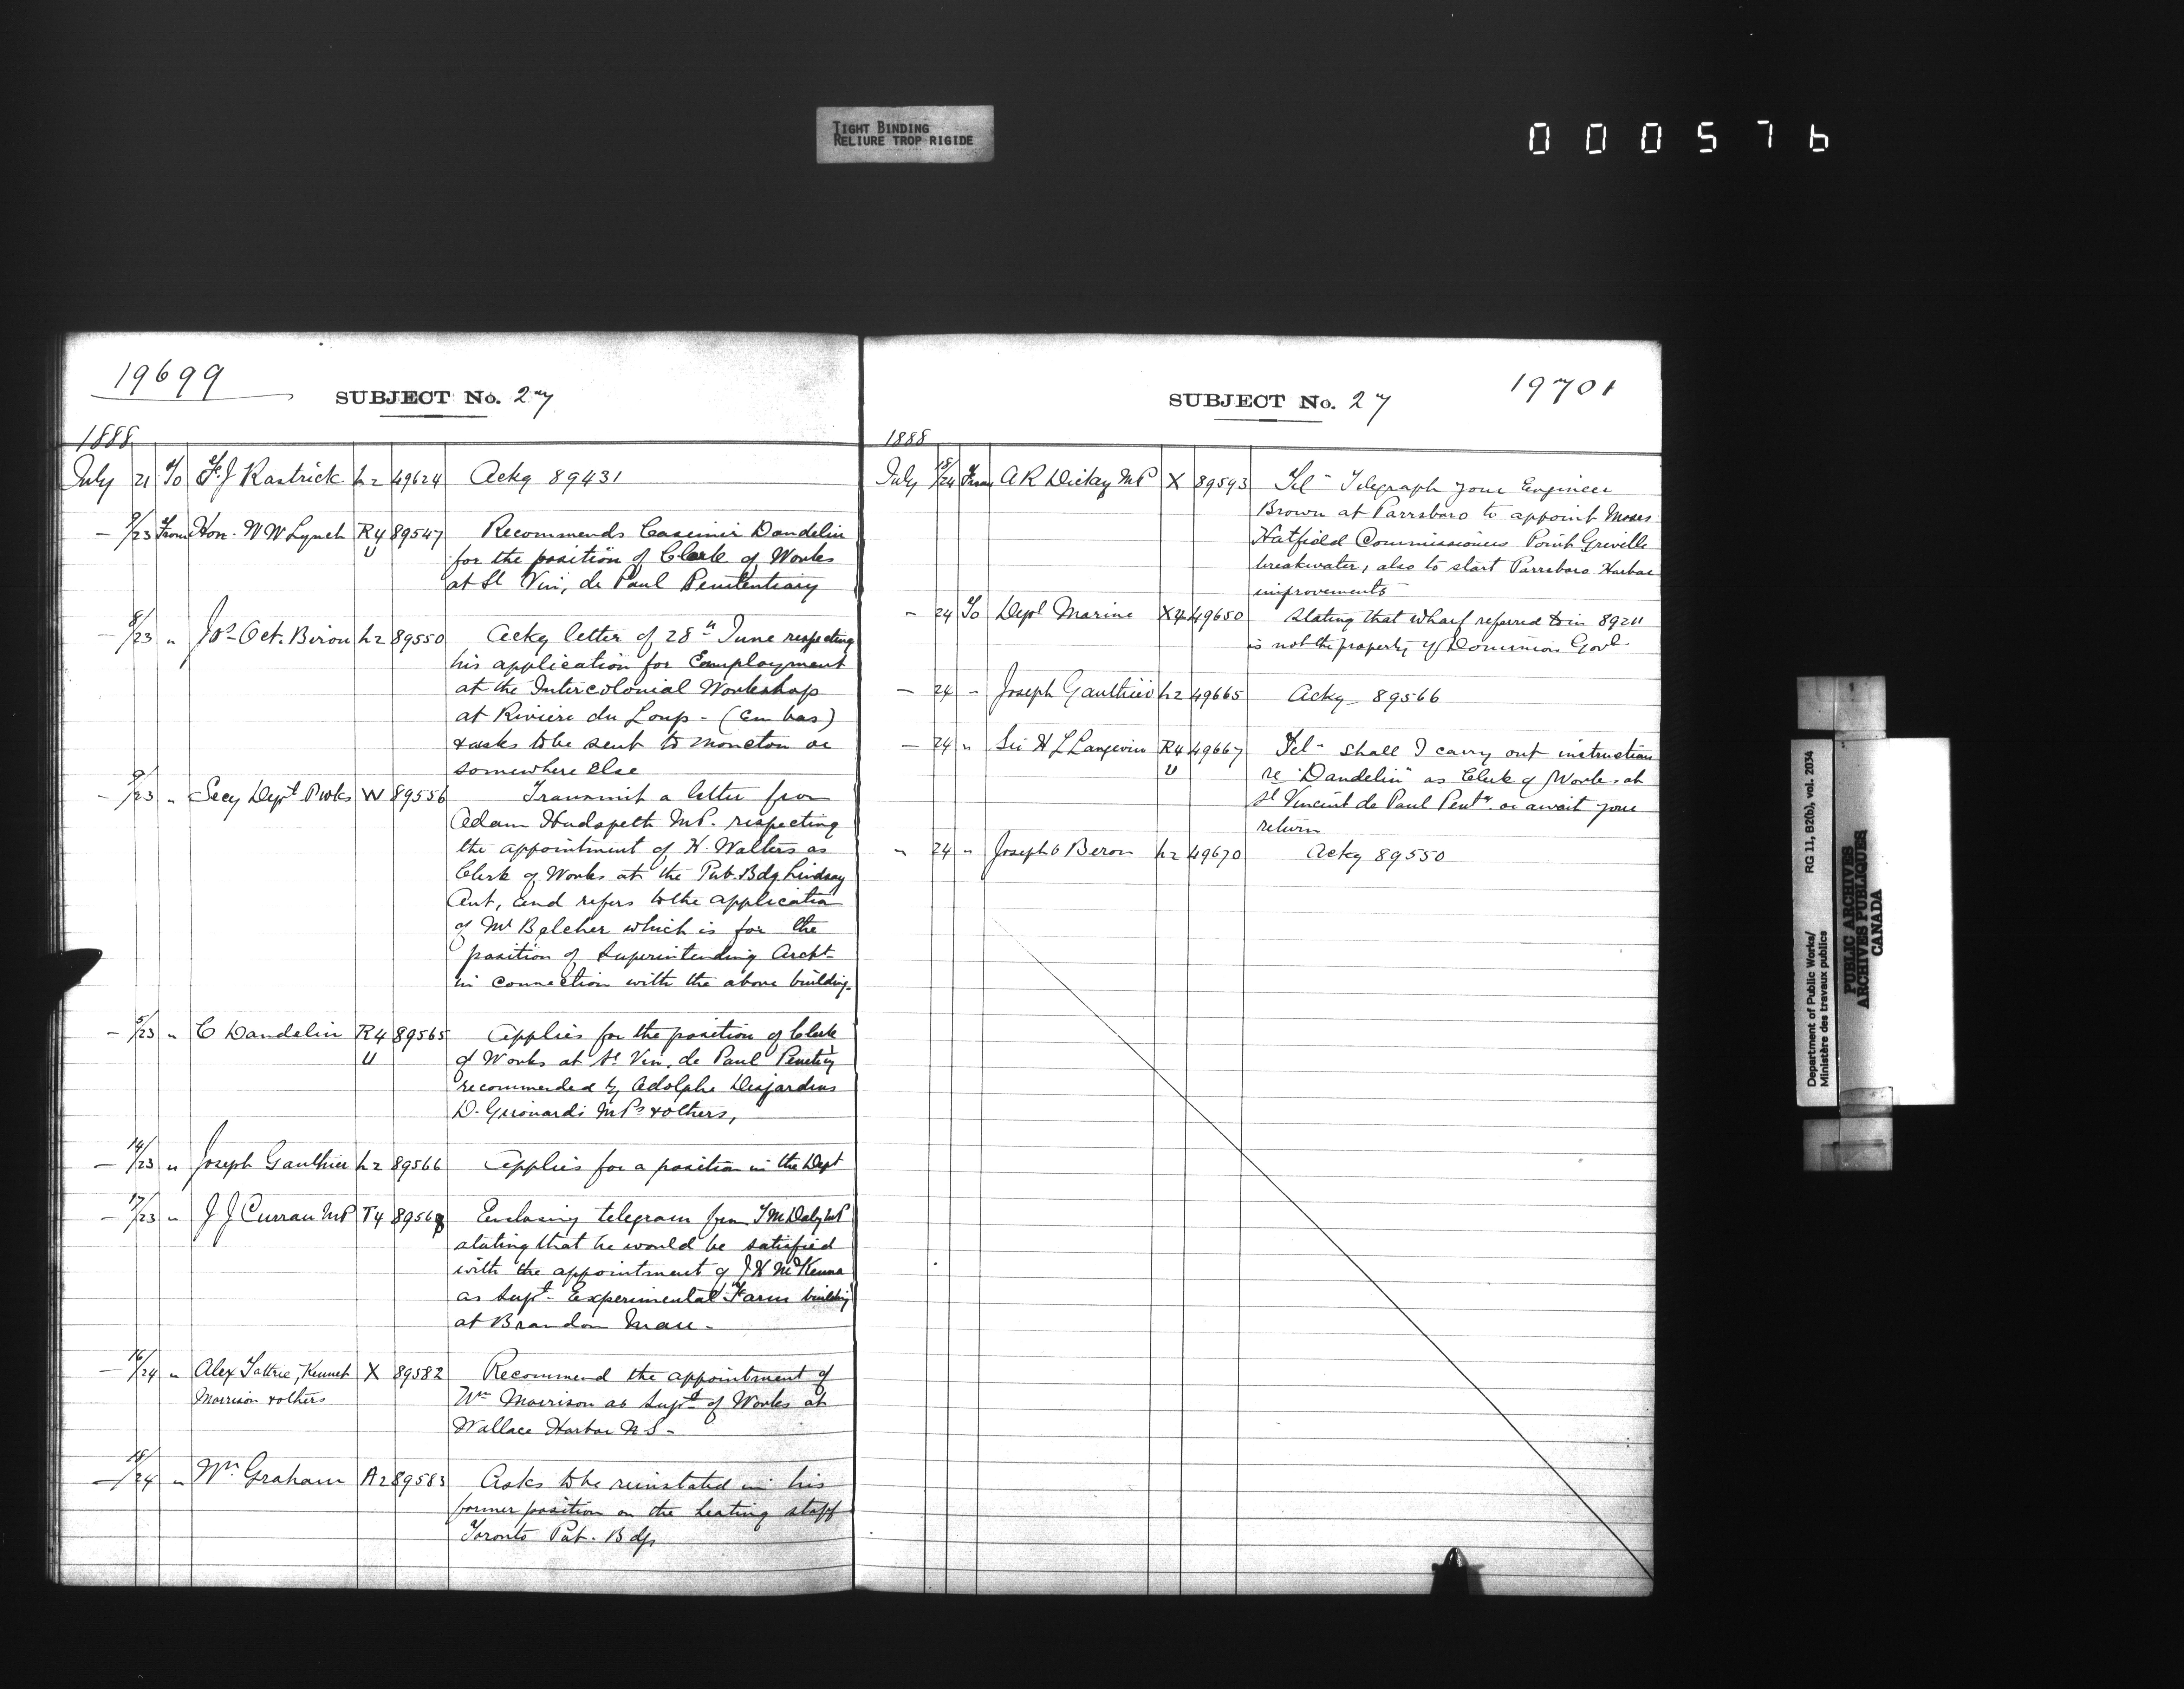 TIGHT BINDING
RELIURE TROP RIGIDE
000576
19699
SUBJECT No. 27
1888
July 21 To F. J Rastrick h2 49624 Acky 89431
— 9/23 From Hon. W W Lynch R4 U 89547 Recommends Casimir Dandelin
for the position of Clerk of Works
at St Vin, de Paul Penitentiary
— 8/23 " Jos- Oct. Biron h2 89550 Acky letter of 28th June respecting
his application for Employment
at the Intercolonial Workshop
at Riviere du Loup - (en bas)
& asks to be sent to Moncton or
somewhere else
— 9/23 " Secy Dept P Wks W 89556 Transmit a letter from
Adam Hudspeth MP. respecting
the appointment of H. Walters as
Clerk of Works at the Pub. Bdg Lindsay
Ont, and refers to the application
of Mr Belcher which is for the
position of Superintending Archt
in connection with the above building.
— 5/23 " C Dandelin R4 U 89565 Applies for the position of Clerk
of Works at St Vin, de Paul Penitt'y
recommended by Adolphe Desjardins
D. Girouard MPs & others,
— 14/23 " Joseph Gauthier h2 89566 Applies for a position in the Dept
— 17/23 " J J Curran MP T4 89568 Enclosing telegram from T M Daly MP
stating that he would be satisfied
with the appointment of J H McKenna
as Supt- Experimental Farm building
at Brandon Man -
— 16/24 " Alex Tattrie, Kennet X 89582 Recommend the appointment of
Morrison & others Wm Morrison as Supt of Works at
Wallace Harbor N S -
— 18/24 " Wm Graham A2 89583 Asks to be reinstated in his
former position on the heating staff
Toronto Pub. Bdgs
SUBJECT No. 27
19701
1888
July 18/24 From A R Dickey MP X 89593 Tel- Telegraph your Engineer
Brown at Parrsboro to appoint Moses
Hatfield Commissioners Point Greville
breakwater, also to start Parrsboro Harbor
improvements
— 24 To Dept Marine X4 49650 Stating that wharf referred to in 89211
is not the property of Dominion Govt-
— 24 " Joseph Gauthier h2 49665 Acky 89566
— 24 " Sir H L Langevin R4 U 49667 Tel- Shall I carry out instruction
re "Dandelin" as Clerk of Works at
St Vincent de Paul Penty. or await your
return
" 24 " Joseph O Beron h2 49670 Acky 89550
Department of Public Works/
Ministère des travaux publics
RG 11, B2(b), vol. 2034
PUBLIC ARCHIVES
ARCHIVES PUBLIQUES
CANADA